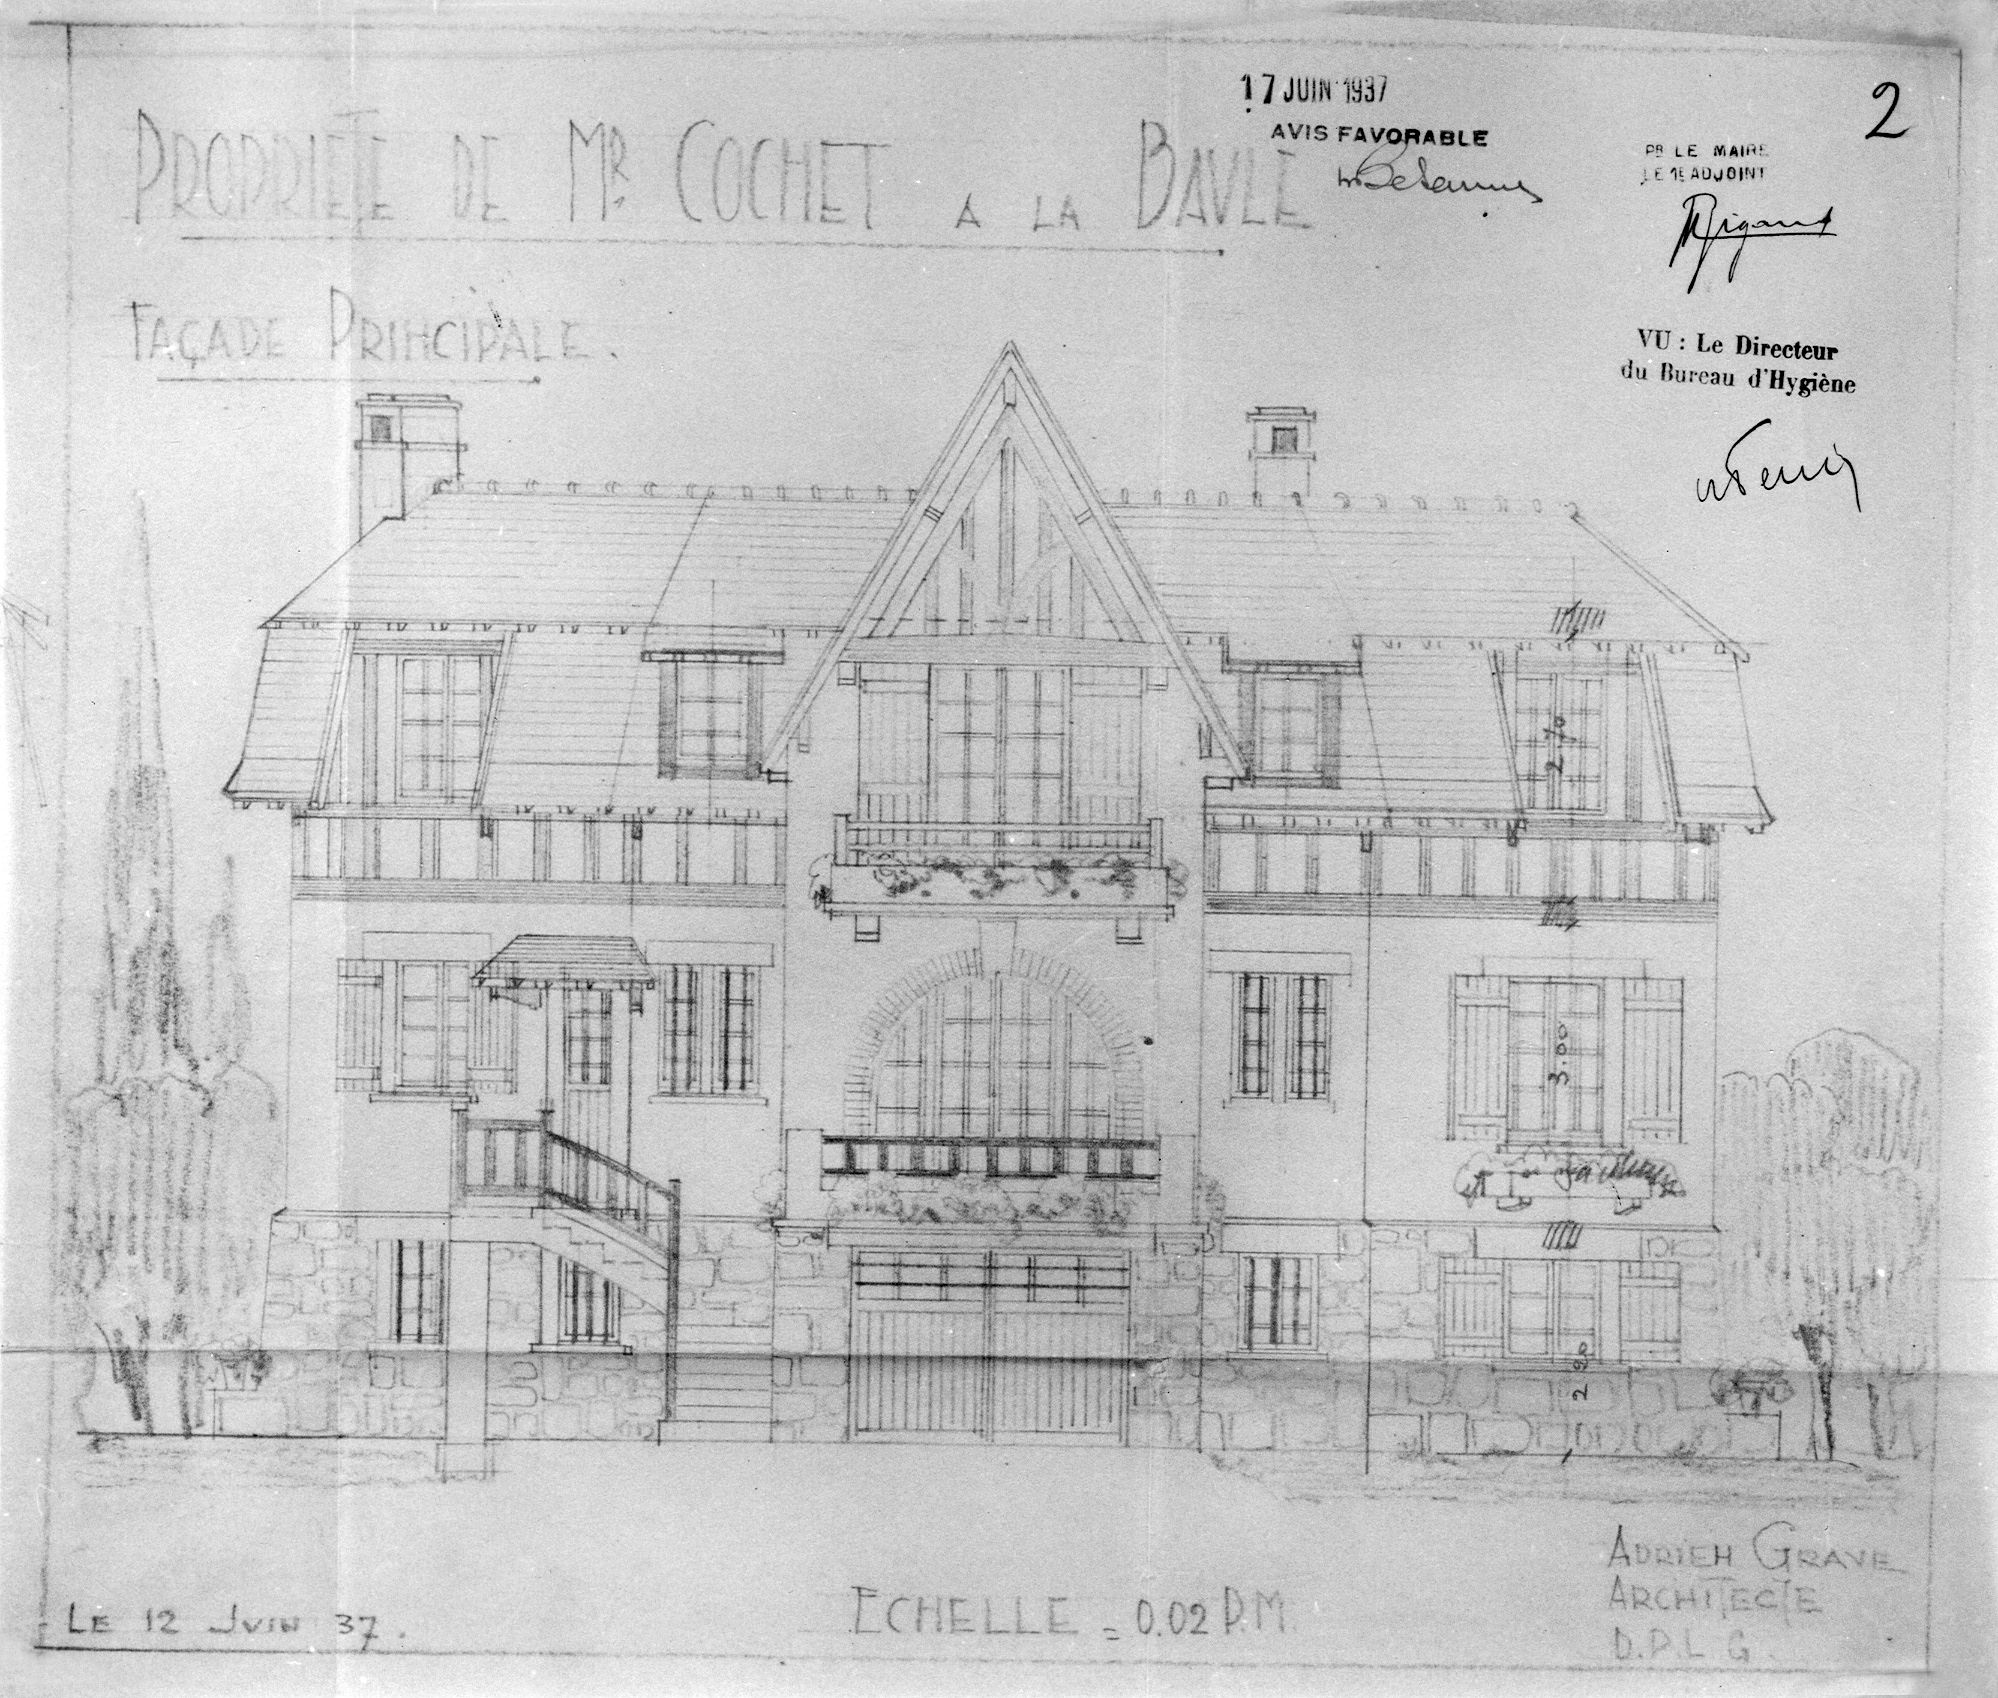 PROPRIETE DE MR. COCHET A LA BAULE
17 JUIN 1937
AVIS FAVORABLE
2
PR LE MAIRE
LE 1E ADJOINT
VU : Le Directeur
du Bureau d'Hygiène
FAÇADE PRINCIPALE.
2.70
3.00
2.90
LE 12 JUIN 37.
ECHELLE = 0.02 P.M.
ADRIEN GRAVE
ARCHITECTE
D.P.L.G.